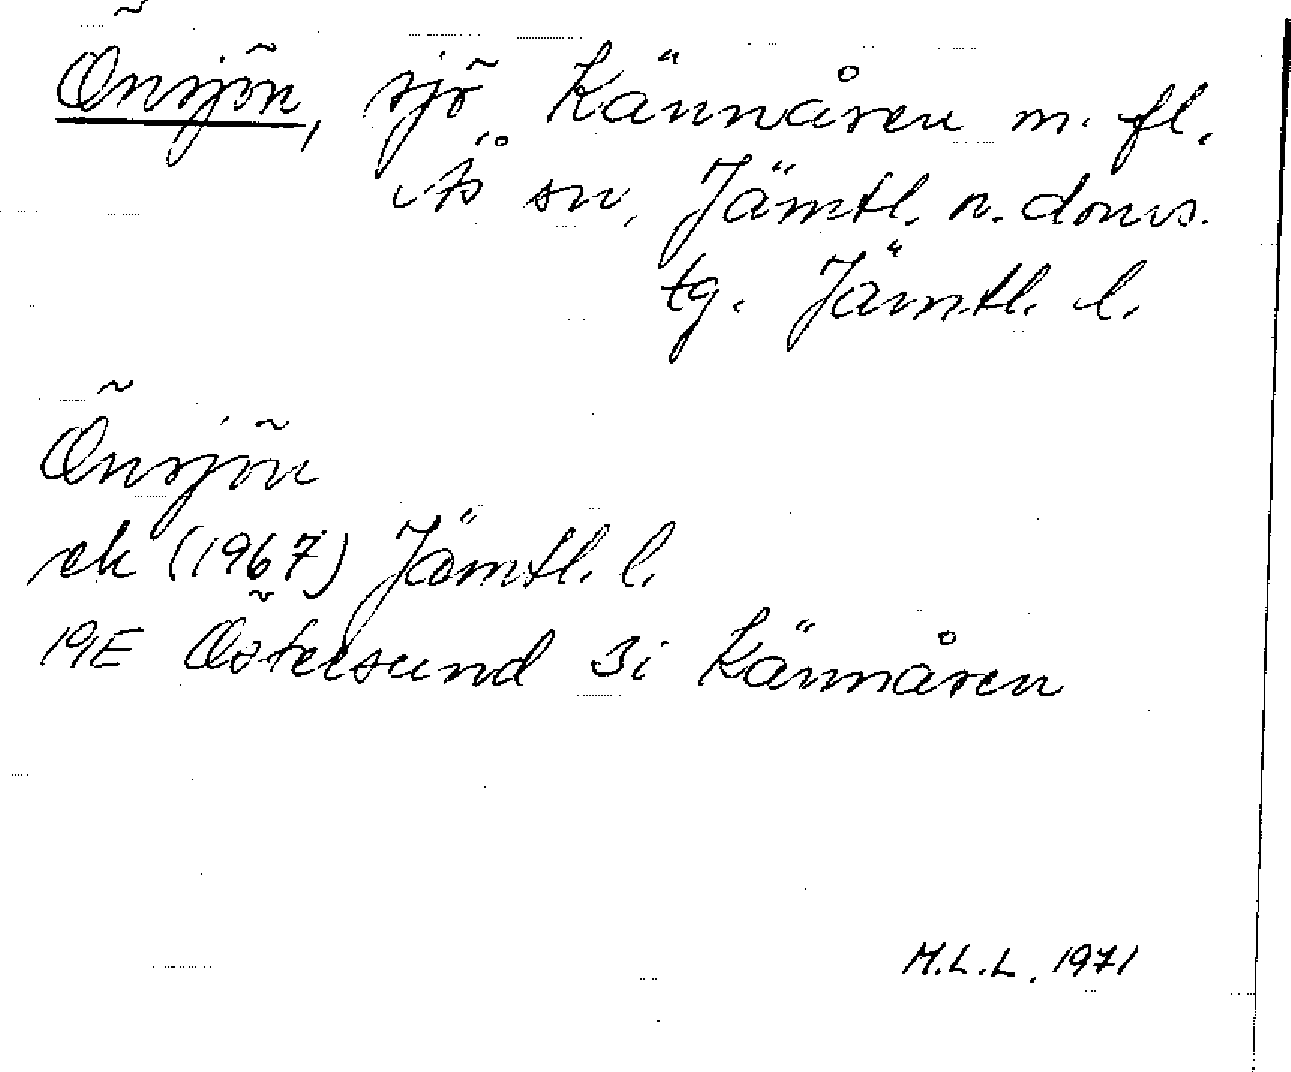 Önsjön, sjö Kännåren m. fl.
Ås sn, Jämtl. n. doms.
tg. Jämtl. l.
Önsjön
ek (1967) Jämtl. l.
19E Östersund 3i Kännåren
M.L.L. 1971